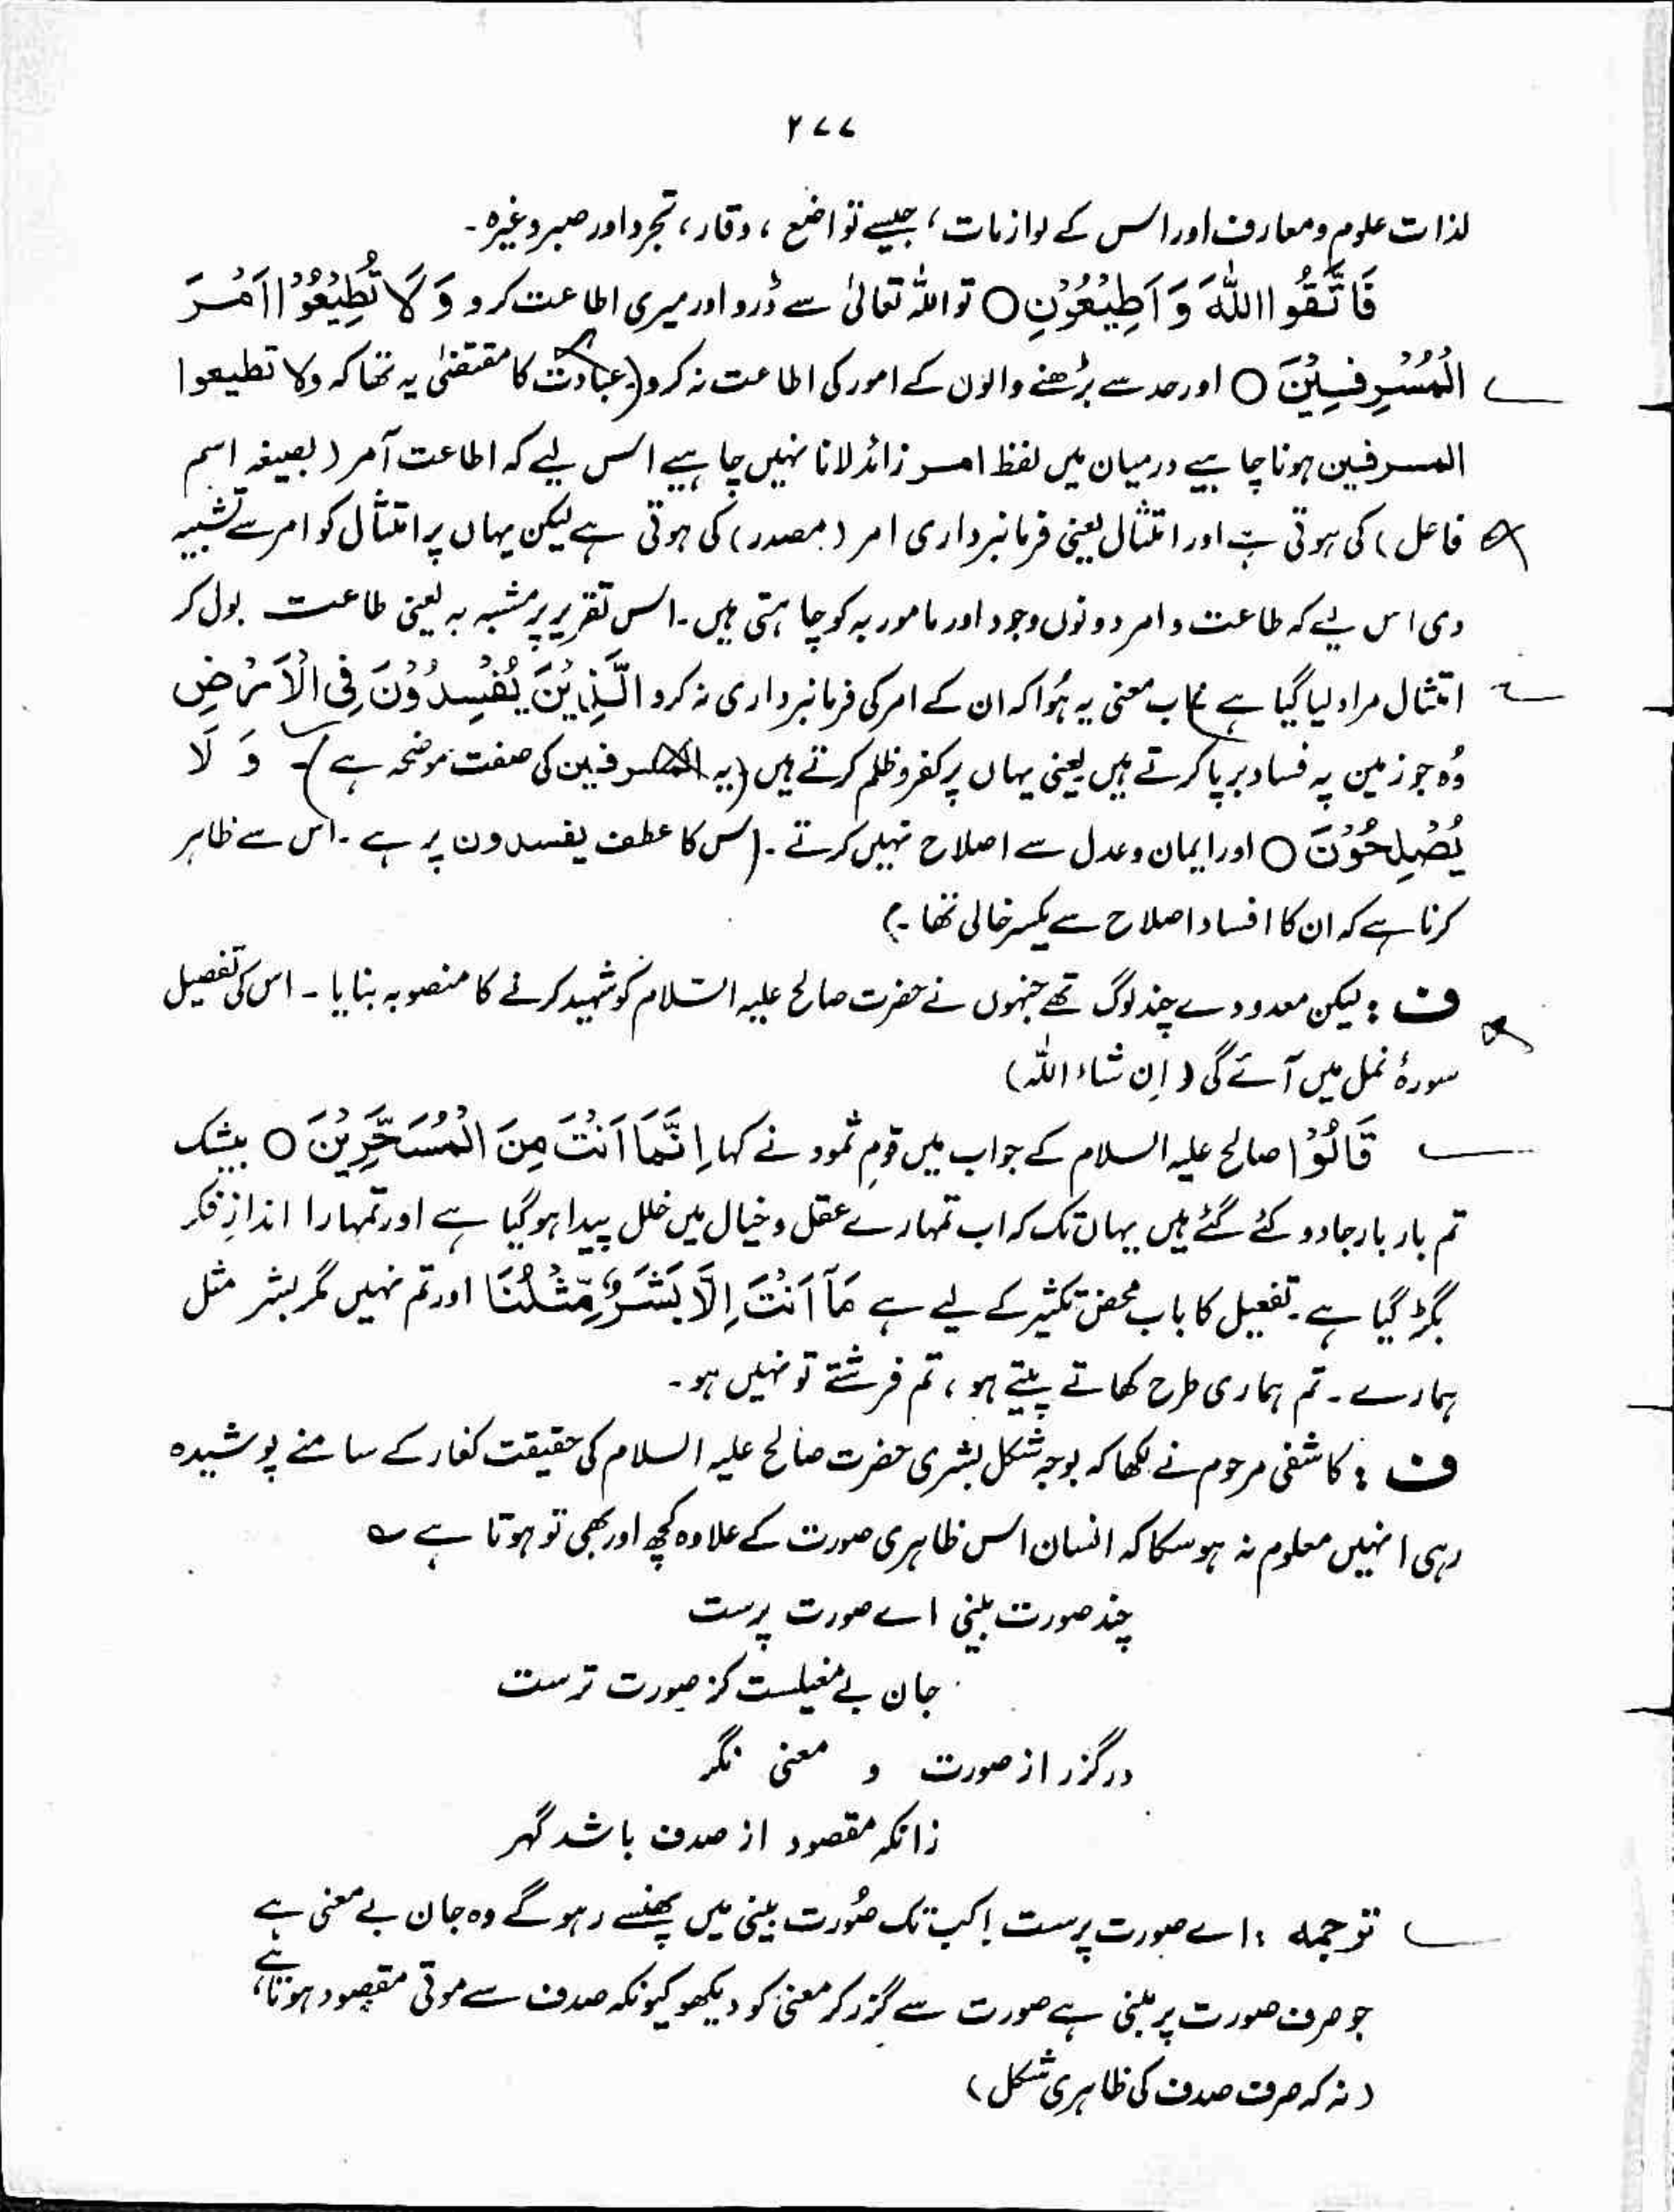 ۲۷۷
لذات علوم و معارف اور اس کے لوازمات، جیسے تواضع، وقار، تجرد اور صبر وغیرہ۔
فَاتَّقُوا اللّٰهَ وَ اَطِيْعُوْنِ ○ تو اللہ تعالیٰ سے ڈرو اور میری اطاعت کرو وَ لَا تُطِيْعُوْٓا اَمْرَ
الْمُسْرِفِيْنَ ○ اور حد سے بڑھنے والوں کے امور کی اطاعت نہ کرو (عبادت کا مقتضیٰ یہ تھا کہ ولا تطیعوا
المسرفین ہونا چاہیے درمیان میں لفظ امر زائد لانا نہیں چاہیے اس لیے کہ اطاعت آمر (بصیغہ اسم
فاعل) کی ہوتی ہے اور امتثال یعنی فرمانبرداری امر (مصدر) کی ہوتی ہے لیکن یہاں پر امتثال کو امر سے تشبیہ
دی اس لیے کہ طاعت و امر دونوں وجود اور مامور بہ کو چاہتی ہیں۔ اس تقریر پر مشبہ بہ یعنی طاعت بول کر
امتثال مراد لیا گیا ہے) اب معنی یہ ہُوا کہ ان کے امر کی فرمانبرداری نہ کرو الَّذِيْنَ يُفْسِدُوْنَ فِي الْاَرْضِ
وُہ جو زمین پہ فساد برپا کرتے ہیں یعنی یہاں پر کفر و ظلم کرتے ہیں (یہ المسرفین کی صفت موضحہ ہے)۔ وَ لَا
يُصْلِحُوْنَ ○ اور ایمان و عدل سے اصلاح نہیں کرتے۔ (اس کا عطف یفسدون پر ہے۔ اس سے ظاہر
کرنا ہے کہ ان کا افساد اصلاح سے یکسر خالی تھا۔)
ف : لیکن معدودے چند لوگ تھے جنہوں نے حضرت صالح علیہ السّلام کو شہید کرنے کا منصوبہ بنایا۔ اس کی تفصیل
سورۂ نمل میں آئے گی (اِن شاء اللہ)
قَالُوْٓا صالح علیہ السلام کے جواب میں قومِ ثمود نے کہا اِنَّمَآ اَنْتَ مِنَ الْمُسَحَّرِيْنَ ○ بیشک
تم بار بار جادو کئے گئے ہیں یہاں تک کہ اب تمہارے عقل و خیال میں خلل پیدا ہو گیا ہے اور تمہارا اندازِ فکر
بگڑ گیا ہے۔ تفعیل کا باب محض تکثیر کے لیے ہے مَآ اَنْتَ اِلَّا بَشَرٌ مِّثْلُنَا اور تم نہیں مگر بشر مثل
ہمارے۔ تم ہماری طرح کھاتے پیتے ہو، تم فرشتے تو نہیں ہو۔
ف : کاشفی مرحوم نے لکھا کہ بوجہ شکل بشری حضرت صالح علیہ السلام کی حقیقت کفار کے سامنے پوشیدہ
رہی انہیں معلوم نہ ہو سکا کہ انسان اس ظاہری صورت کے علاوہ کچھ اور بھی تو ہوتا ہے ؎
چند صورت بینی اے صورت پرست
جان بے کز صورت ترست
درگزر از صورت و معنی نگر
زانکہ مقصود از صدف باشد گہر
ترجمہ : اے صورت پرست! کب تک صُورت بینی میں پھنسے رہو گے وہ جان بے معنی ہے
جو صرف صورت پر مبنی ہے صورت سے گزر کر معنیٰ کو دیکھو کیونکہ صدف سے موتی مقصود ہوتا ہے،
(نہ کہ صرف صدف کی ظاہری شکل)